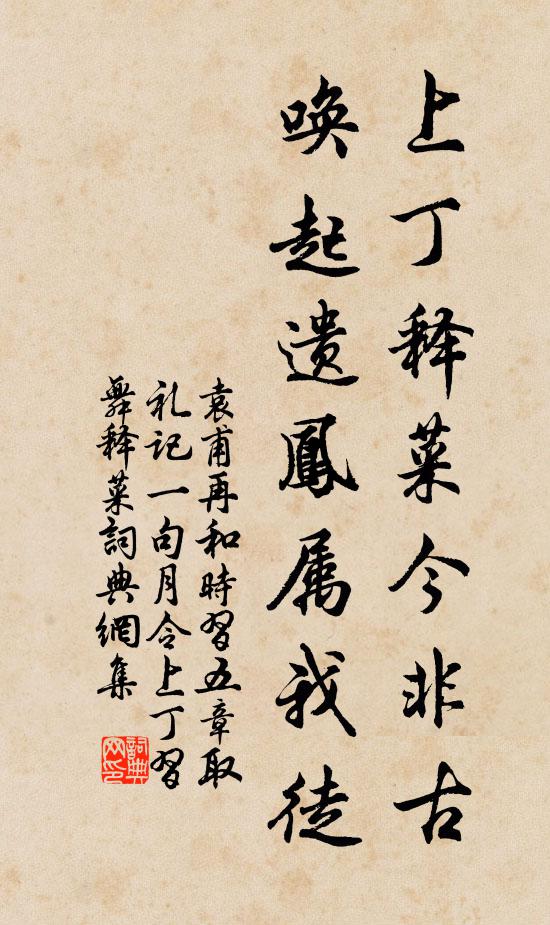 上丁释菜今非古
唤起遗鳳属我徒
袁甫再和時習五章取
礼记一句月令上丁習
舞释菜詞典網集
詞典
网印